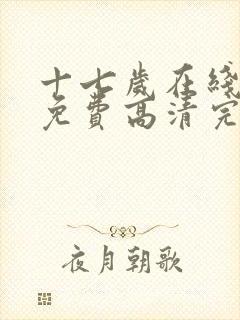 十七岁在线
免费高清完
夜月朝歌